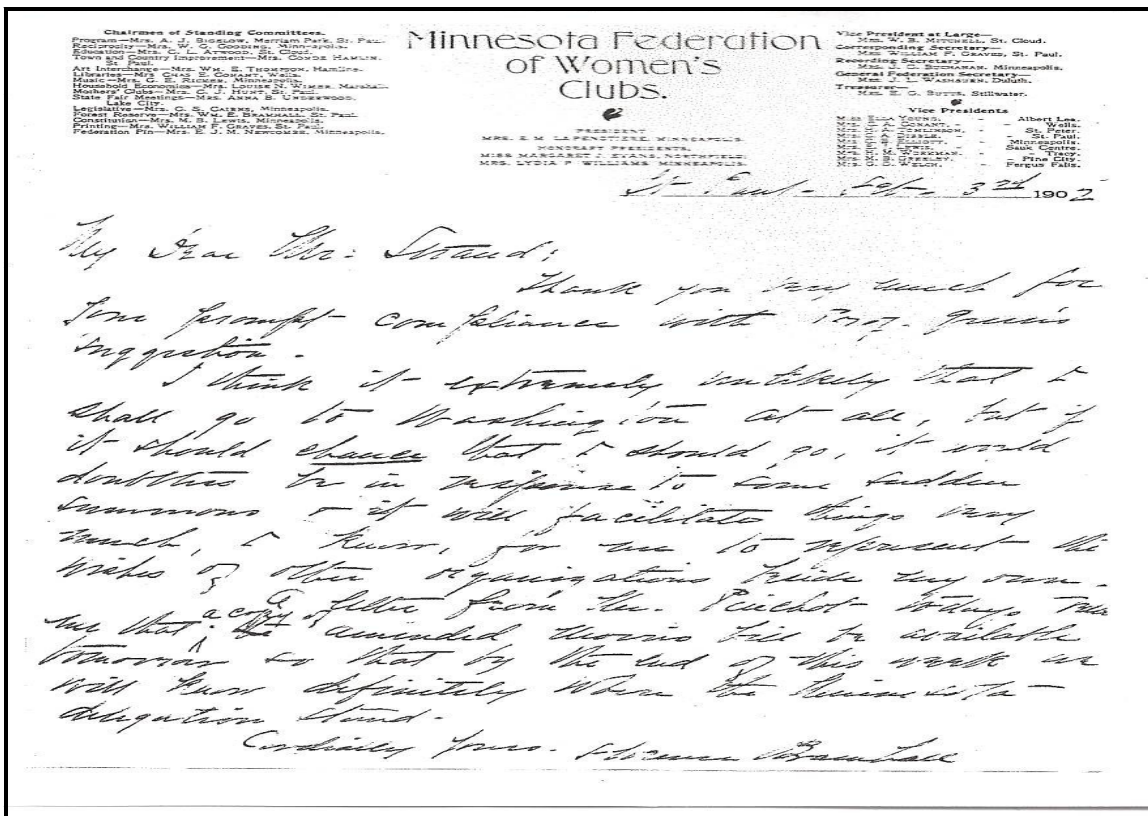 Chairmen of Standing Committees.
Program—Mrs. A. J. Bigelow, Merriam Park, St. Paul.
Reciprocity—Mrs. W. G. Gooding, Minneapolis.
Education—Mrs. C. L. Atwood, St. Cloud.
Town and Country Improvement—Mrs. Conde Hamlin,
St. Paul.
Art Interchange—Mrs. Wm. E. Thompson, Hamline.
Libraries—Mrs Chas E. Conant, Wells.
Music—Mrs. G. E. Ricker, Minneapolis.
Household Economics—Mrs. Louise N. Wimer, Marshall.
Mothers' Clubs—Mrs. C. J. Hunt, St. Paul.
State Fair Meetings—Mrs. Anna B. Underwood,
Lake City.
Legislative—Mrs. C. S. Cairns, Minneapolis.
Forest Reserve—Mrs. Wm. E. Bramhall, St. Paul.
Constitution—Mrs. M. B. Lewis, Minneapolis.
Printing—Mrs. William F. Graves, St. Paul.
Federation Pin—Mrs. E. J. M. Newcomb, Minneapolis.
Minnesota Federation
of Women's
Clubs.
PRESIDENT
MRS. E. M. MINNEAPOLIS.
HONORARY PRESIDENTS,
MISS MARGARET J. EVANS, NORTHFIELD.
MRS. LYDIA P. WILLIAMS, MINNEAPOLIS.
Vice President at Large—
Mrs. W. B. Mitchell, St. Cloud.
Corresponding Secretary—
Mrs William F. Graves, St. Paul.
Recording Secretary—
Mrs. J. C. Buchanan, Minneapolis.
General Federation Secretary—
Mrs. J. L. Washburn, Duluth.
Treasurer—
Mrs. E. G. Butts, Stillwater.
Vice Presidents
Miss Ella Young, - Albert Lea.
Mrs. Conant, - Wells.
Mrs. H. A. Tomlinson, - St. Peter.
Mrs. - St. Paul.
Mrs. Elliott, - Minneapolis.
Mrs. Lewis, - Sauk Centre.
Mrs. H. M. Workman, - Tracy.
Mrs. M. B. Greeley, - Pine City.
Mrs. G. C. Welch, - Fergus Falls.
St. Paul - Feb. 3rd 1902
My Dear Mr. Strand:
Thank you very much for
your prompt compliance with Prof. Green's
suggestion.
I think it extremely unlikely that I
shall go to Washington at all, but if
it should chance that I should go, it would
doubtless be in response to some sudden
summons & it will facilitate things very
much, I know, for me to represent the
wishes of other organizations beside my own.
A letter from Mr. Pinchot today, tells
me that a copy of the amended Morris bill be available
tomorrow so that by the end of this week we
will know definitely where the Minnesota
delegation stand.
Cordially yours. Florence Bramhall